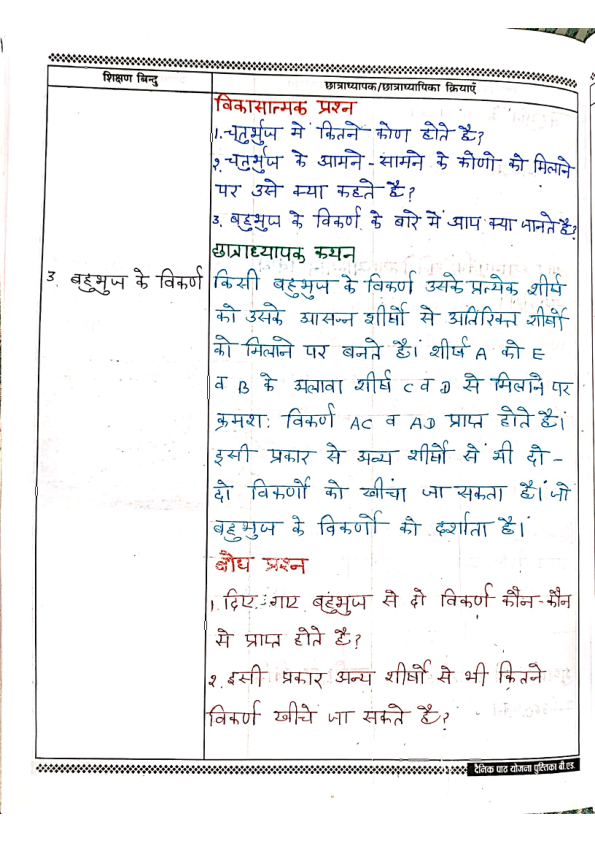 शिक्षण बिन्दु
छात्राध्यापक/छात्राध्यापिका क्रियाएँ
विकासात्मक प्रश्न
1. चतुर्भुज में कितने कोण होते है?
2. चतुर्भुज के आमने-सामने के कोणो को मिलाने
पर उसे क्या कहते है?
3. बहुभुज के विकर्ण के बारे में आप क्या जानते है?
छात्राध्यापक कथन
3. बहुभुज के विकर्ण
किसी बहुभुज के विकर्ण उसके प्रत्येक शीर्ष
को उसके आसन्न शीर्षो से अतिरिक्त शीर्षो
को मिलाने पर बनते है। शीर्ष A को E
व B के अलावा शीर्ष C व D से मिलाने पर
क्रमश: विकर्ण AC व AD प्राप्त होते है।
इसी प्रकार से अन्य शीर्षो से भी दो-
दो विकर्णो को खींचा जा सकता है। जो
बहुभुज के विकर्णो को दर्शाता है।
बोध प्रश्न
1. दिए गए बहुभुज से दो विकर्ण कौन-कौन
से प्राप्त होते है?
2. इसी प्रकार अन्य शीर्षो से भी कितने
विकर्ण खीचे जा सकते है?
दैनिक पाठ योजना पुस्तिका बी.एड.